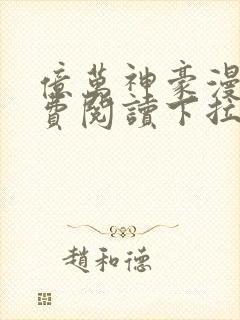 億萬神豪漫
費閱讀下拉
趙和德